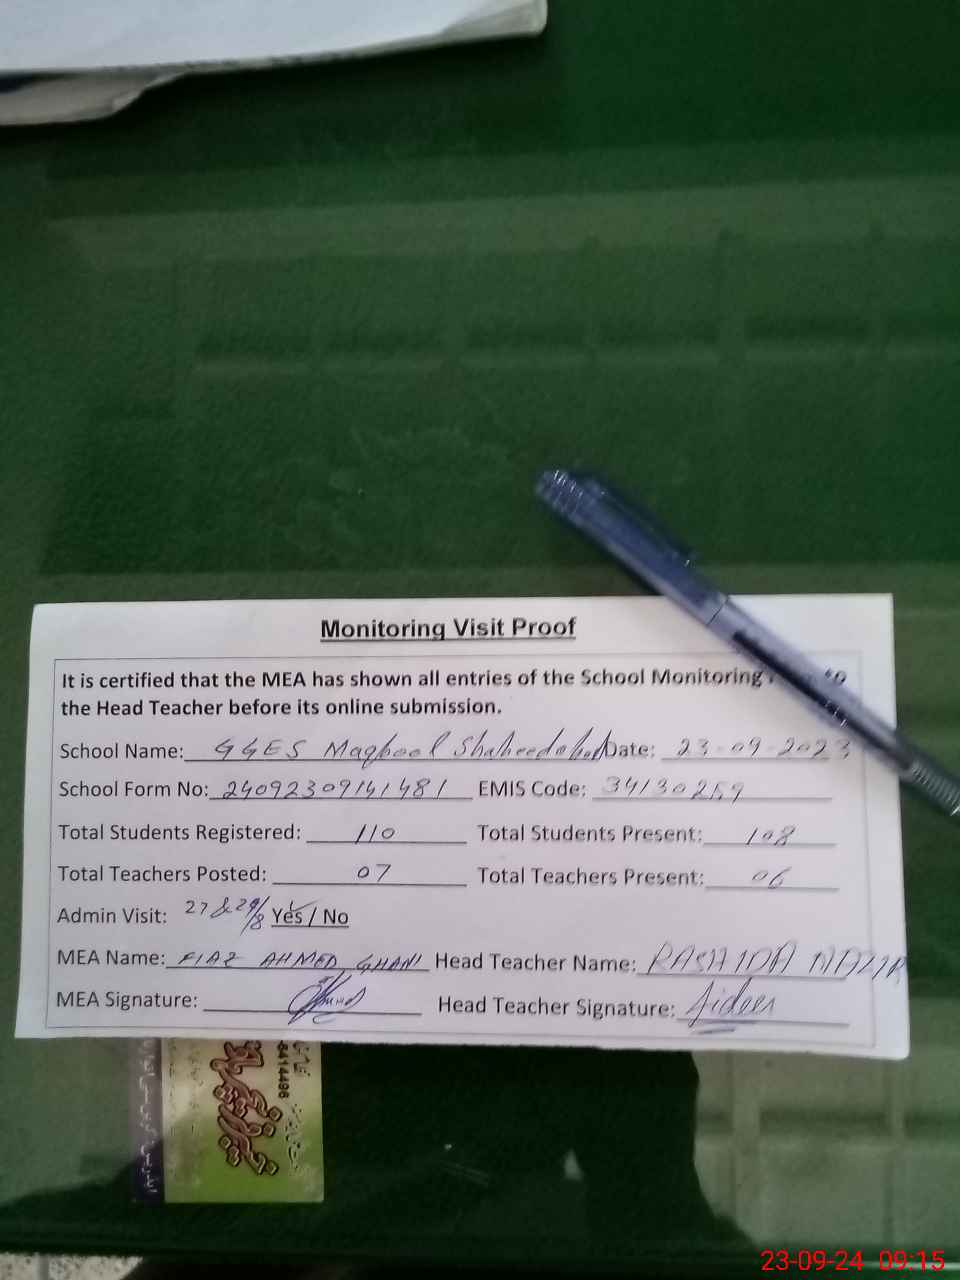 Monitoring Visit Proof
It is certified that the MEA has shown all entries of the School Monitoring to
the Head Teacher before its online submission.
School Name: GGES Maqbool Shaheedabad Date: 23-09-2023
School Form No: 24092309141481 EMIS Code: 34130259
Total Students Registered: 110 Total Students Present: 108
Total Teachers Posted: 07 Total Teachers Present: 06
Admin Visit: 27 & 29/8 Yes / No
MEA Name: FIAZ AHMED GHANI Head Teacher Name: RASHIDA NAZIR
MEA Signature: Head Teacher Signature:
6414496
23-09-24 09:15